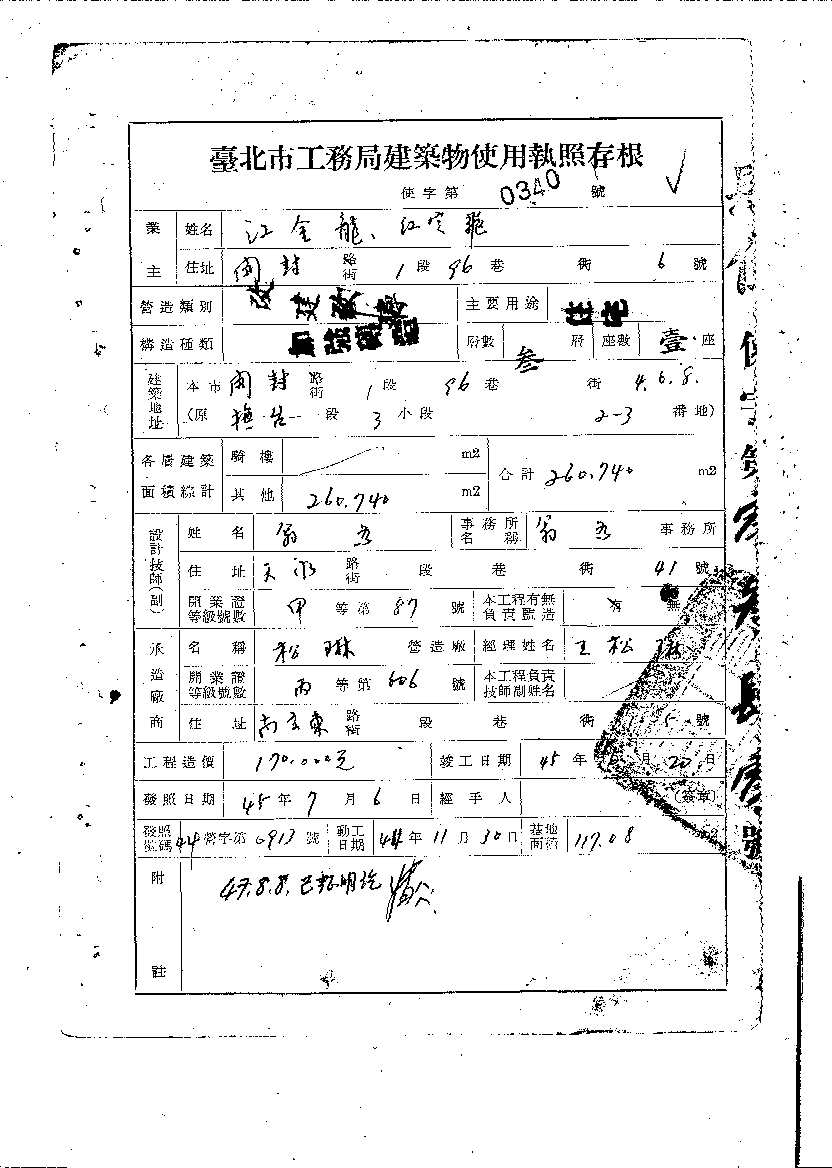 臺北市工務局建築物使用執照存根
使字第 0340 號
業主 姓名 江金龍、江
住址 開封 路街 1 段 96 巷 衖 6 號
營造類別 改建 主要用途 住宅
構造種類 加強磚造 層數 叁 層 座數 壹 座
建築地址 本市 開封 路街 1 段 96 巷 衖 4.6.8.
(原 段 3 小段 2-3 番地)
各層建築面積綜計 騎樓 m2 合計 260.740 m2
其他 260.740 m2
設計技師(副) 姓名 翁 事務所名稱 翁 事務所
住址 天水 路街 段 巷 衖 41 號
開業證等級號數 甲 等第 87 號 本工程有無負責監造 有 無
承造廠商 名稱 松琳 營造廠 經理姓名 王松琳
開業證等級號數 丙 等第 606 號 本工程負責技師副姓名
住址 南京東 路街 段 巷 衖 5 號
工程造價 170.000元 竣工日期 45 年 月 20 日
發照日期 45 年 7 月 6 日 經手人 (簽章)
發照號碼 44 營字第 0913 號 動工日期 44 年 11 月 30 日 基地面積 117.08 m2
附註 47.8.8.
使字第
號